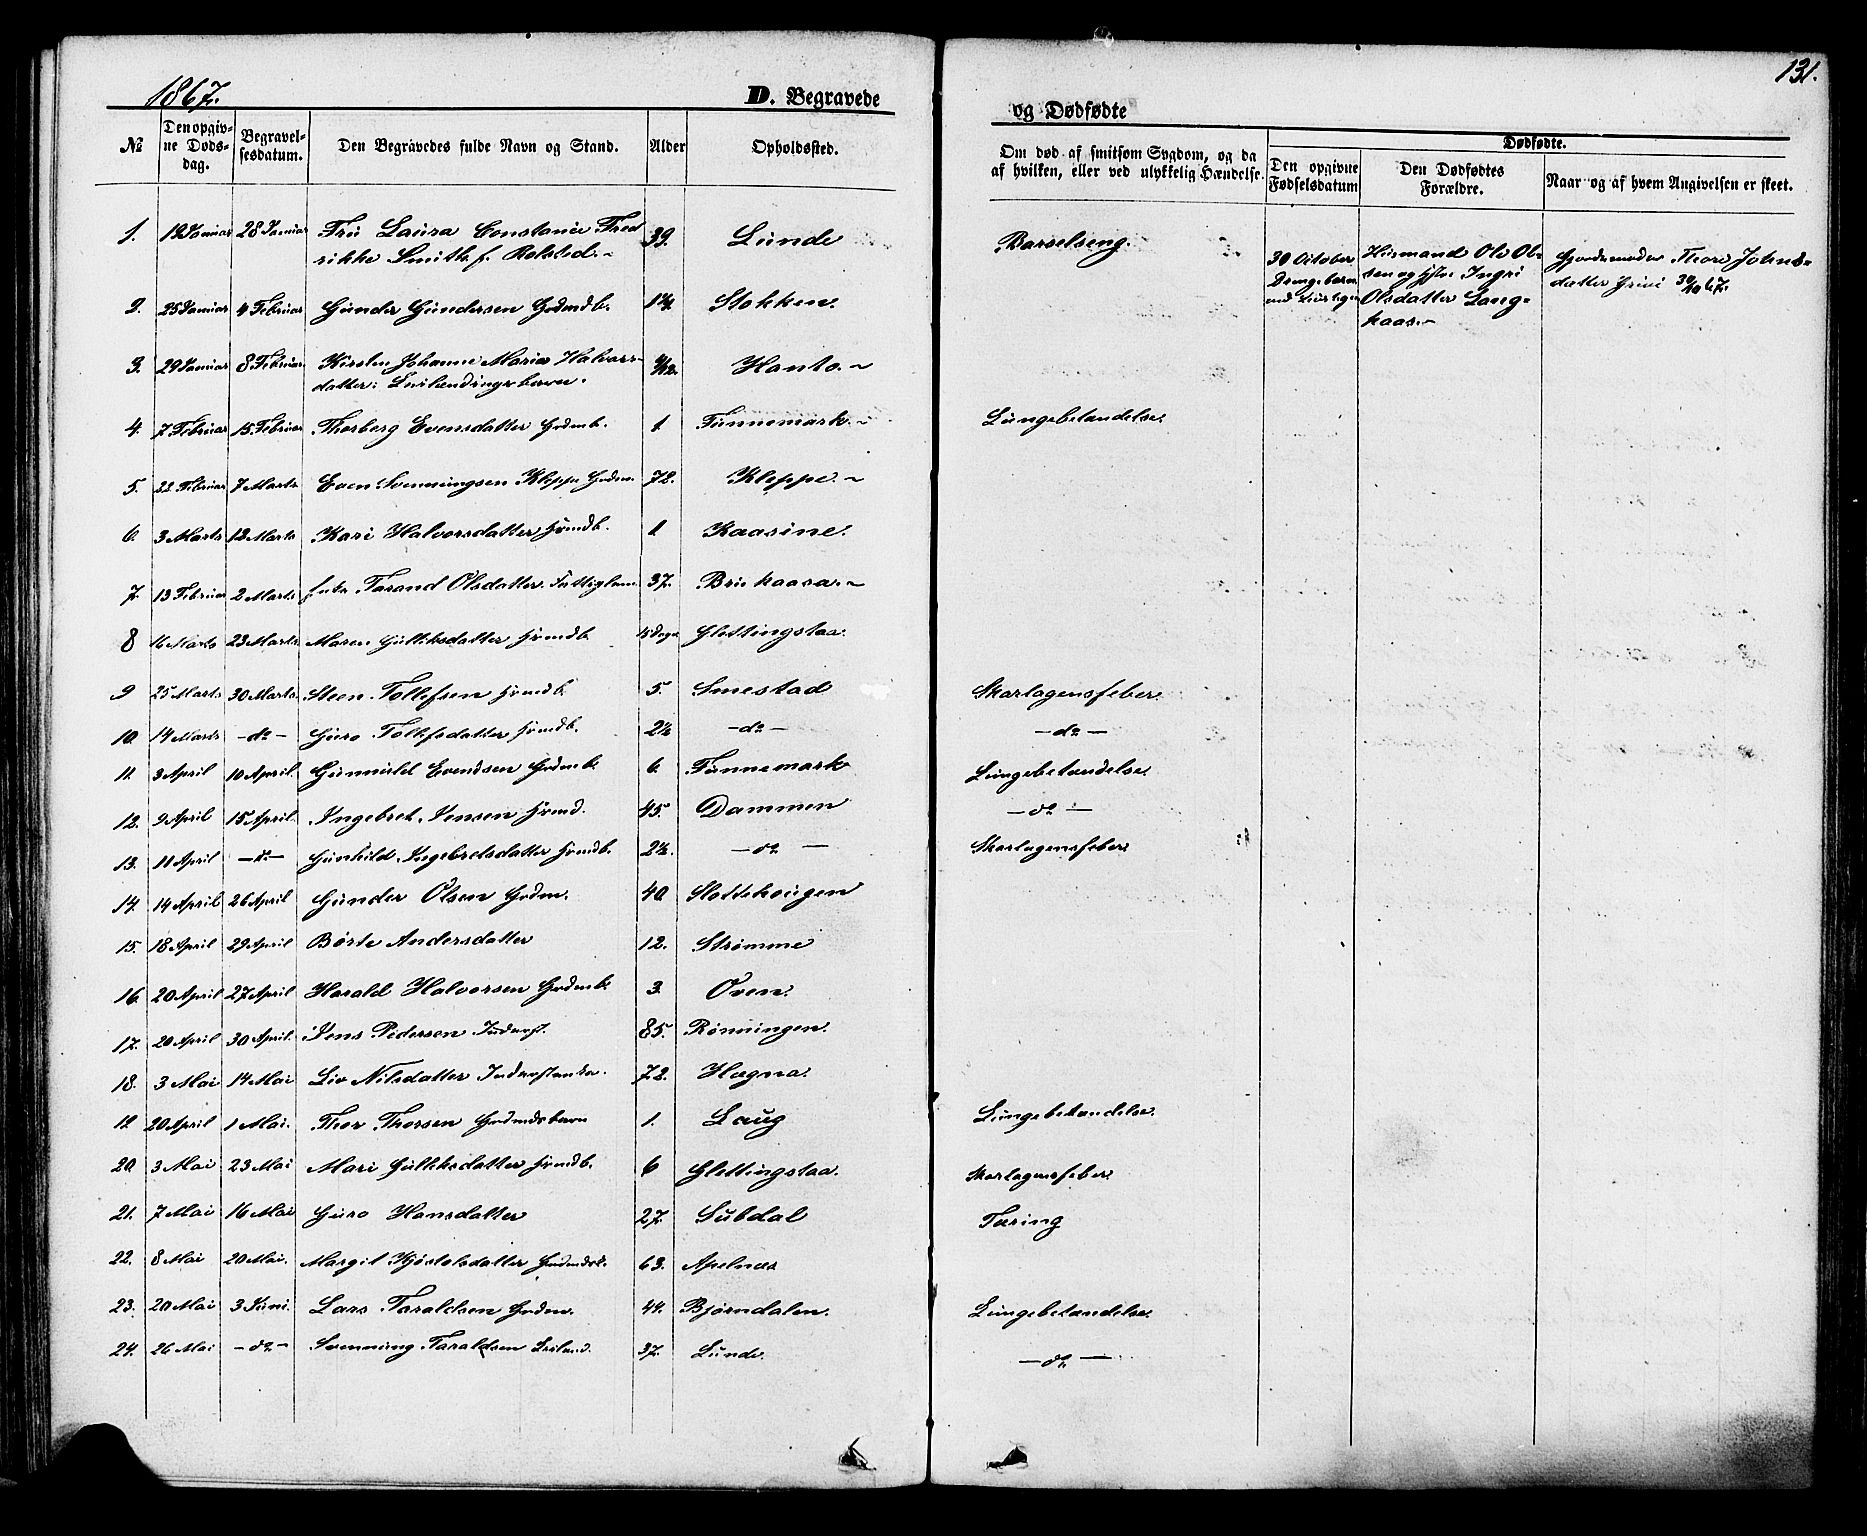 1867.
D. Begravede
og Dødfødte
131.
№ Den opgivne Dødsdag. Begravelsesdatum. Den Begravedes fulde Navn og Stand. Alder Opholdssted.
Om død af smitsom Sygdom, og da af hvilken, eller ved ulykkelig Hændelse.
Dødfødte.
Den opgivne Fødselsdatum Den Dødfødtes Forældre. Naar og af hvem Angivelsen er skeet.
1. 19 Januar 28 Januar Fru Laura Constance Fred 39. Lunde Barselseng.
rikke Smith f. Rolsted.
30 October Drengebarn
Huusmand Ole Olsen og Hstr Ingri Olsdatter Langkaas.
Gjordemoder Thore Johnsdatter Grini 30/10 67.
2. 25 Januar 4 Februar Gunder Gundersen Grdmdb. Stokken.
3. 29 Januar 8 Februar Kirsten Johanne Maria Halvors- Hanto.
datter:
4. 7 Februar 15 Februar Thorberg Evensdatter Grdmb. 1. Funnemark. Lungebetændelse.
5. 22 Februar 7 Marts Even Svenningsen Kleppe Grdm. 72. Kleppe.
6. 3 Marts 12 Marts Kari Halvorsdatter Hsmdb. 1 Kaasine.
7. 13 Februar 2 Marts Tarand Olsdatter Fattiglem 37.
8 16 Marts 23 Marts Maren Gulliksdatter Hsmdb 15 Dage Glettingstaa.
9 25 Marts 30 Marts. Steen Tollefsen Hsmdb. 5. Smestad Skarlagensfeber.
10. 14 Marts - do - Guro Tollefsdatter Hsmdb. 2½ - do - - do -
11. 3 April 10 April. Gunnuld Evendsen Grdmb. 6. Funnemark Lungebetændelse.
12. 9 April 15 April. Ingebret Jensen Hsmd. 45. Dammen - do -
13. 11 April - do - Gunhild Ingebretsdatter Hsmdb. 2½. - do - Skarlagensfeber.
14. 14 April 26 April Gunder Olsen Grdm. 40 Slottehougen
15. 18 April 29 April Børte Andersdatter 12. Strømme
16. 20 April 27 April Harald Halvorsen Grdmb. 3. Oven.
17. 20 April 30 April. Jens Pedersen Inderst. 85. Rønningen.
18. 3 Mai 14 Mai Liv Nilsdatter Inderstenke. 72. Hægna.
19. 20 April 1 Mai. Thor Thorsen Grdmdsbarn 1. Laug Lungebetændelse.
20. 3 Mai 23 Mai Mari Gulliksdatter Hsmdb. 6 Glettingstaa. Skarlagensfeber.
21. 7 Mai 16 Mai Guro Hansdatter 27. Subdal Tæring
22. 8 Mai 20 Mai. Margit Kjøstolsdatter 63. Apelnæs
23. 20 Mai 3 Juni. Lars Taraldsen Grdm. 44. Bjørndalen. Lungebetændelse.
24. 26 Mai - do - Svenning Taraldsen 37. Lunde. - do -